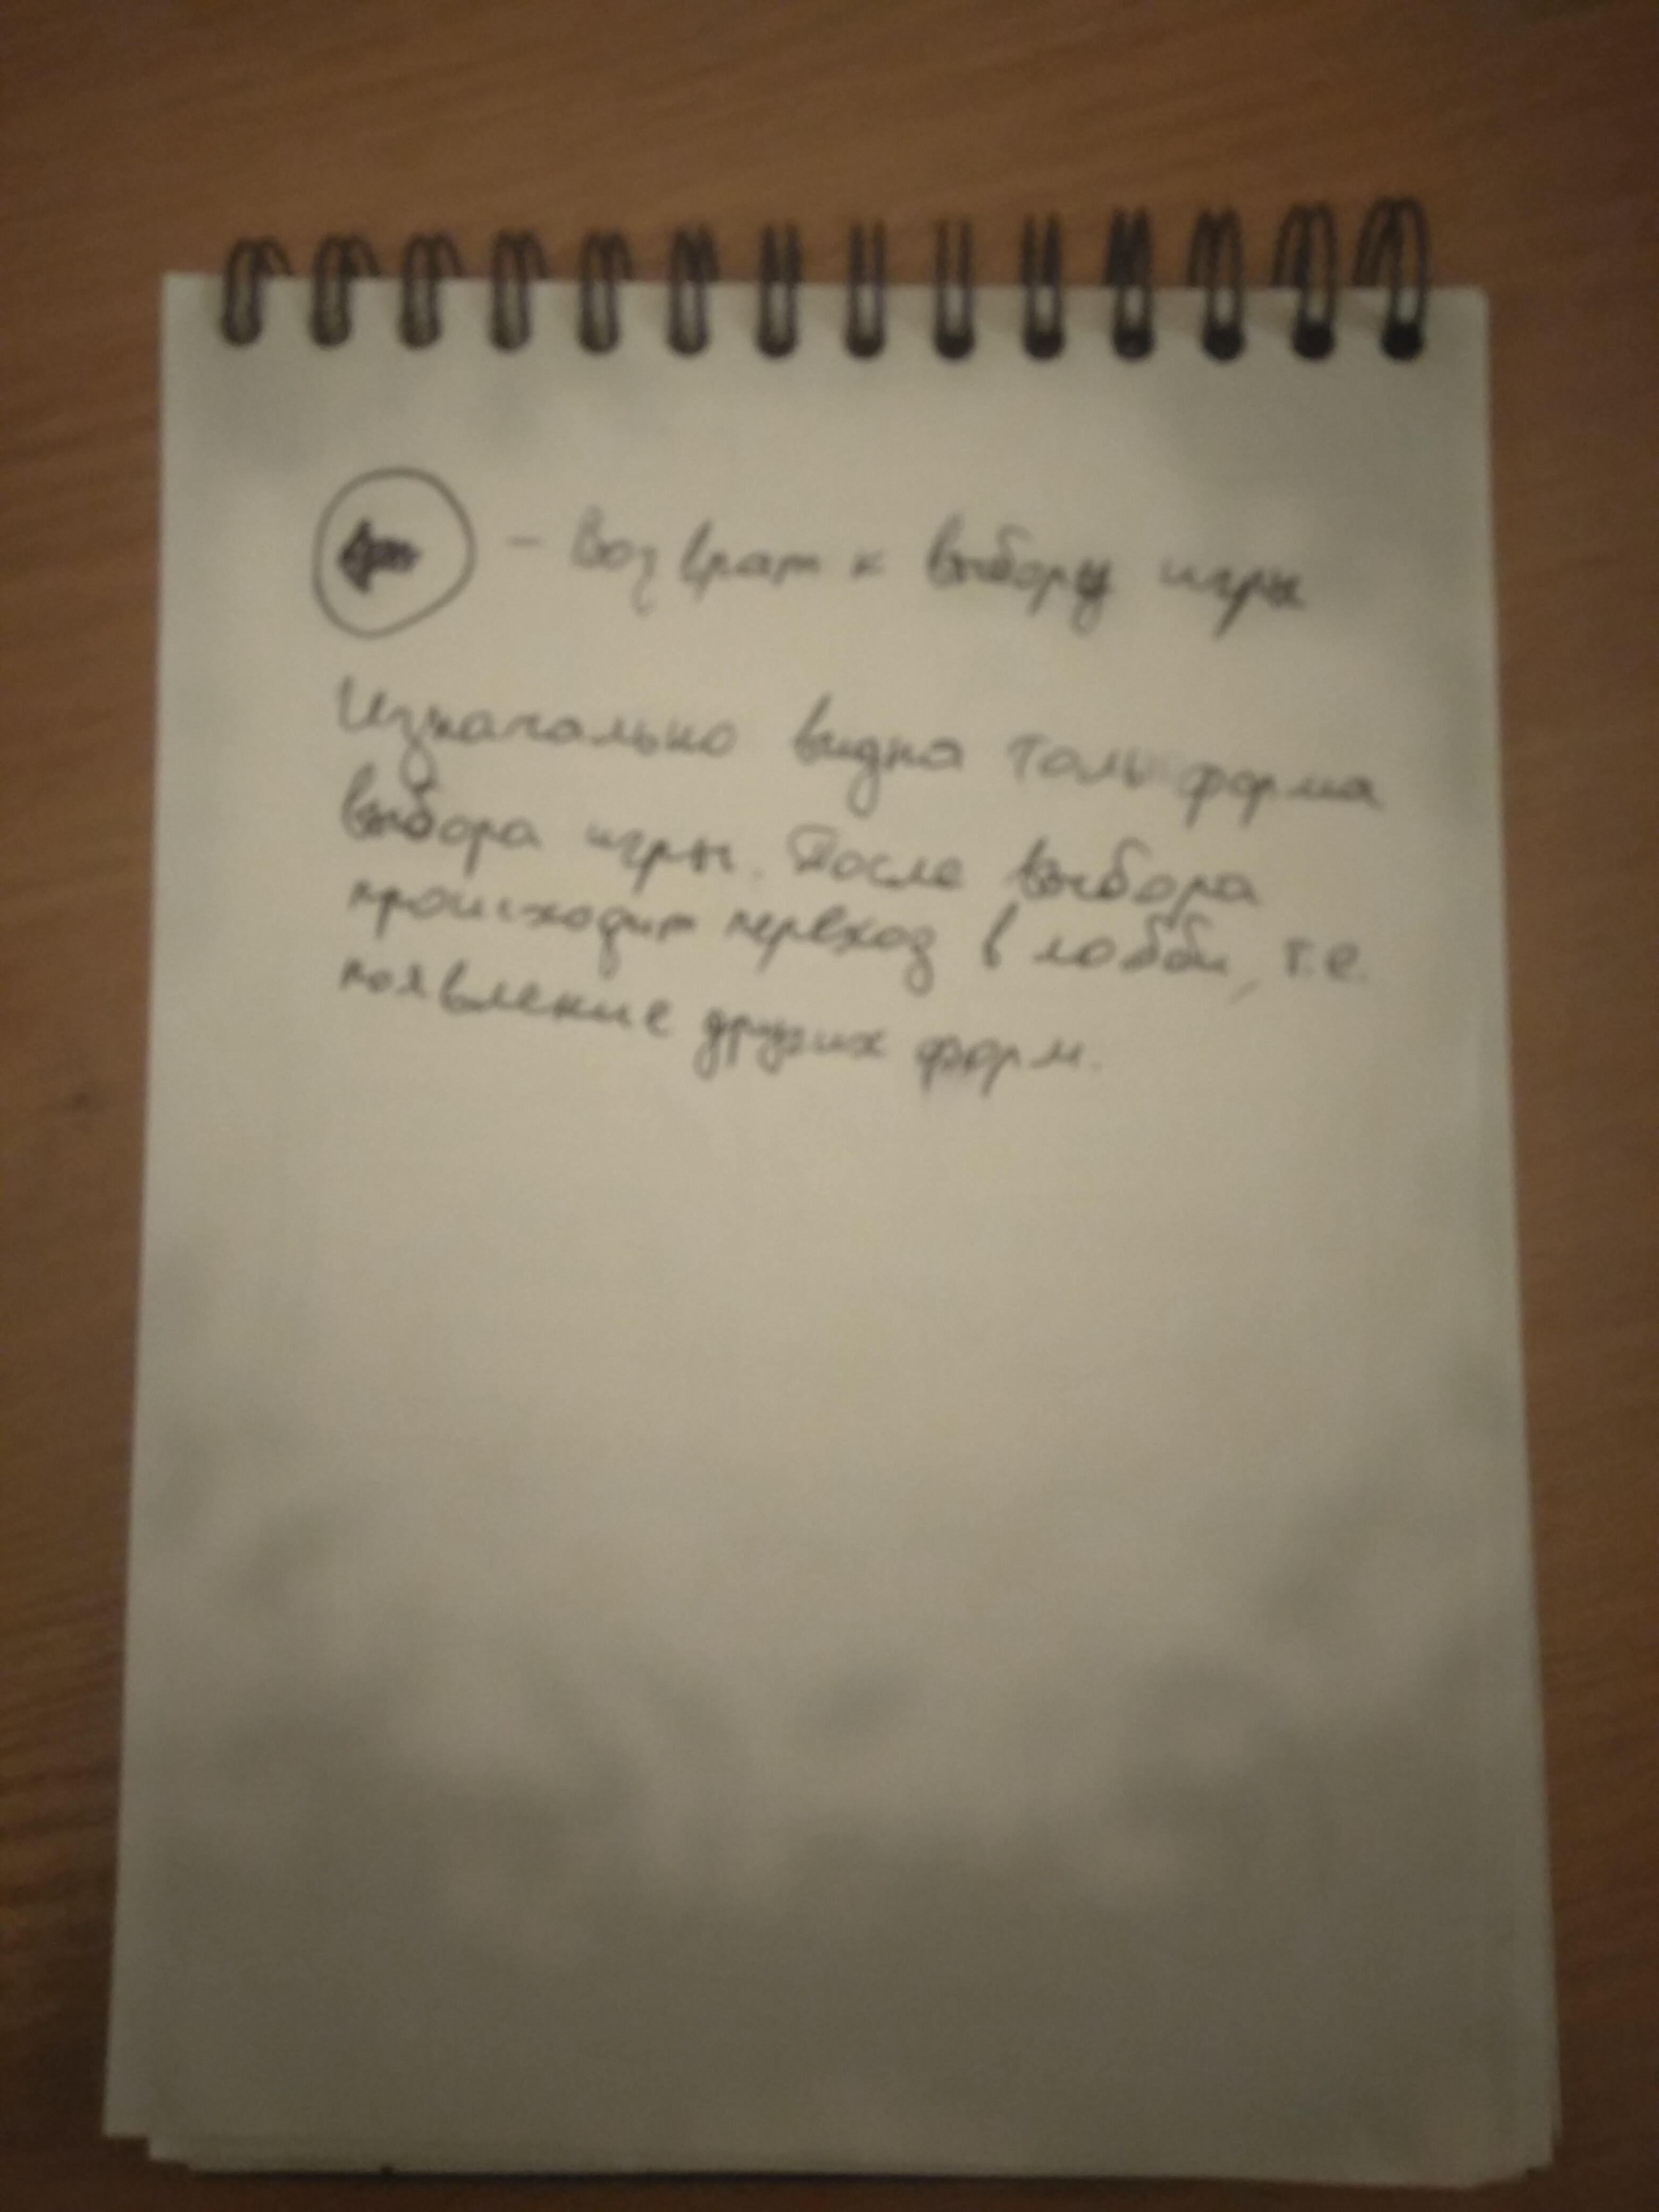 - Возврат к выбору игры
Изначально видна толь форма
выбора игры. После выбора
происходит переход в лобби, т.е.
появление других форм.